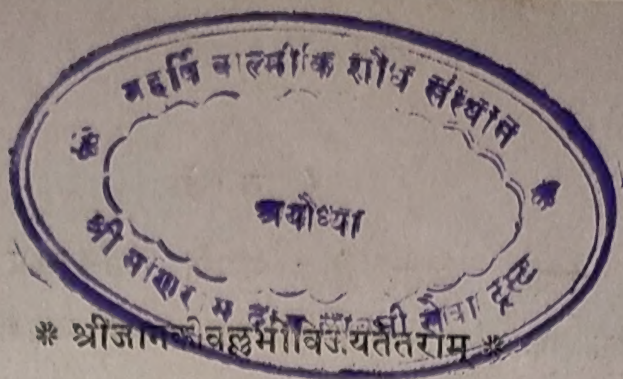 महर्षि वाल्मीकि शोध संस्थान
अयोध्या
श्री सेवा ट्रस्ट
* श्रीजानकीवल्लभोविजयतेतराम् *